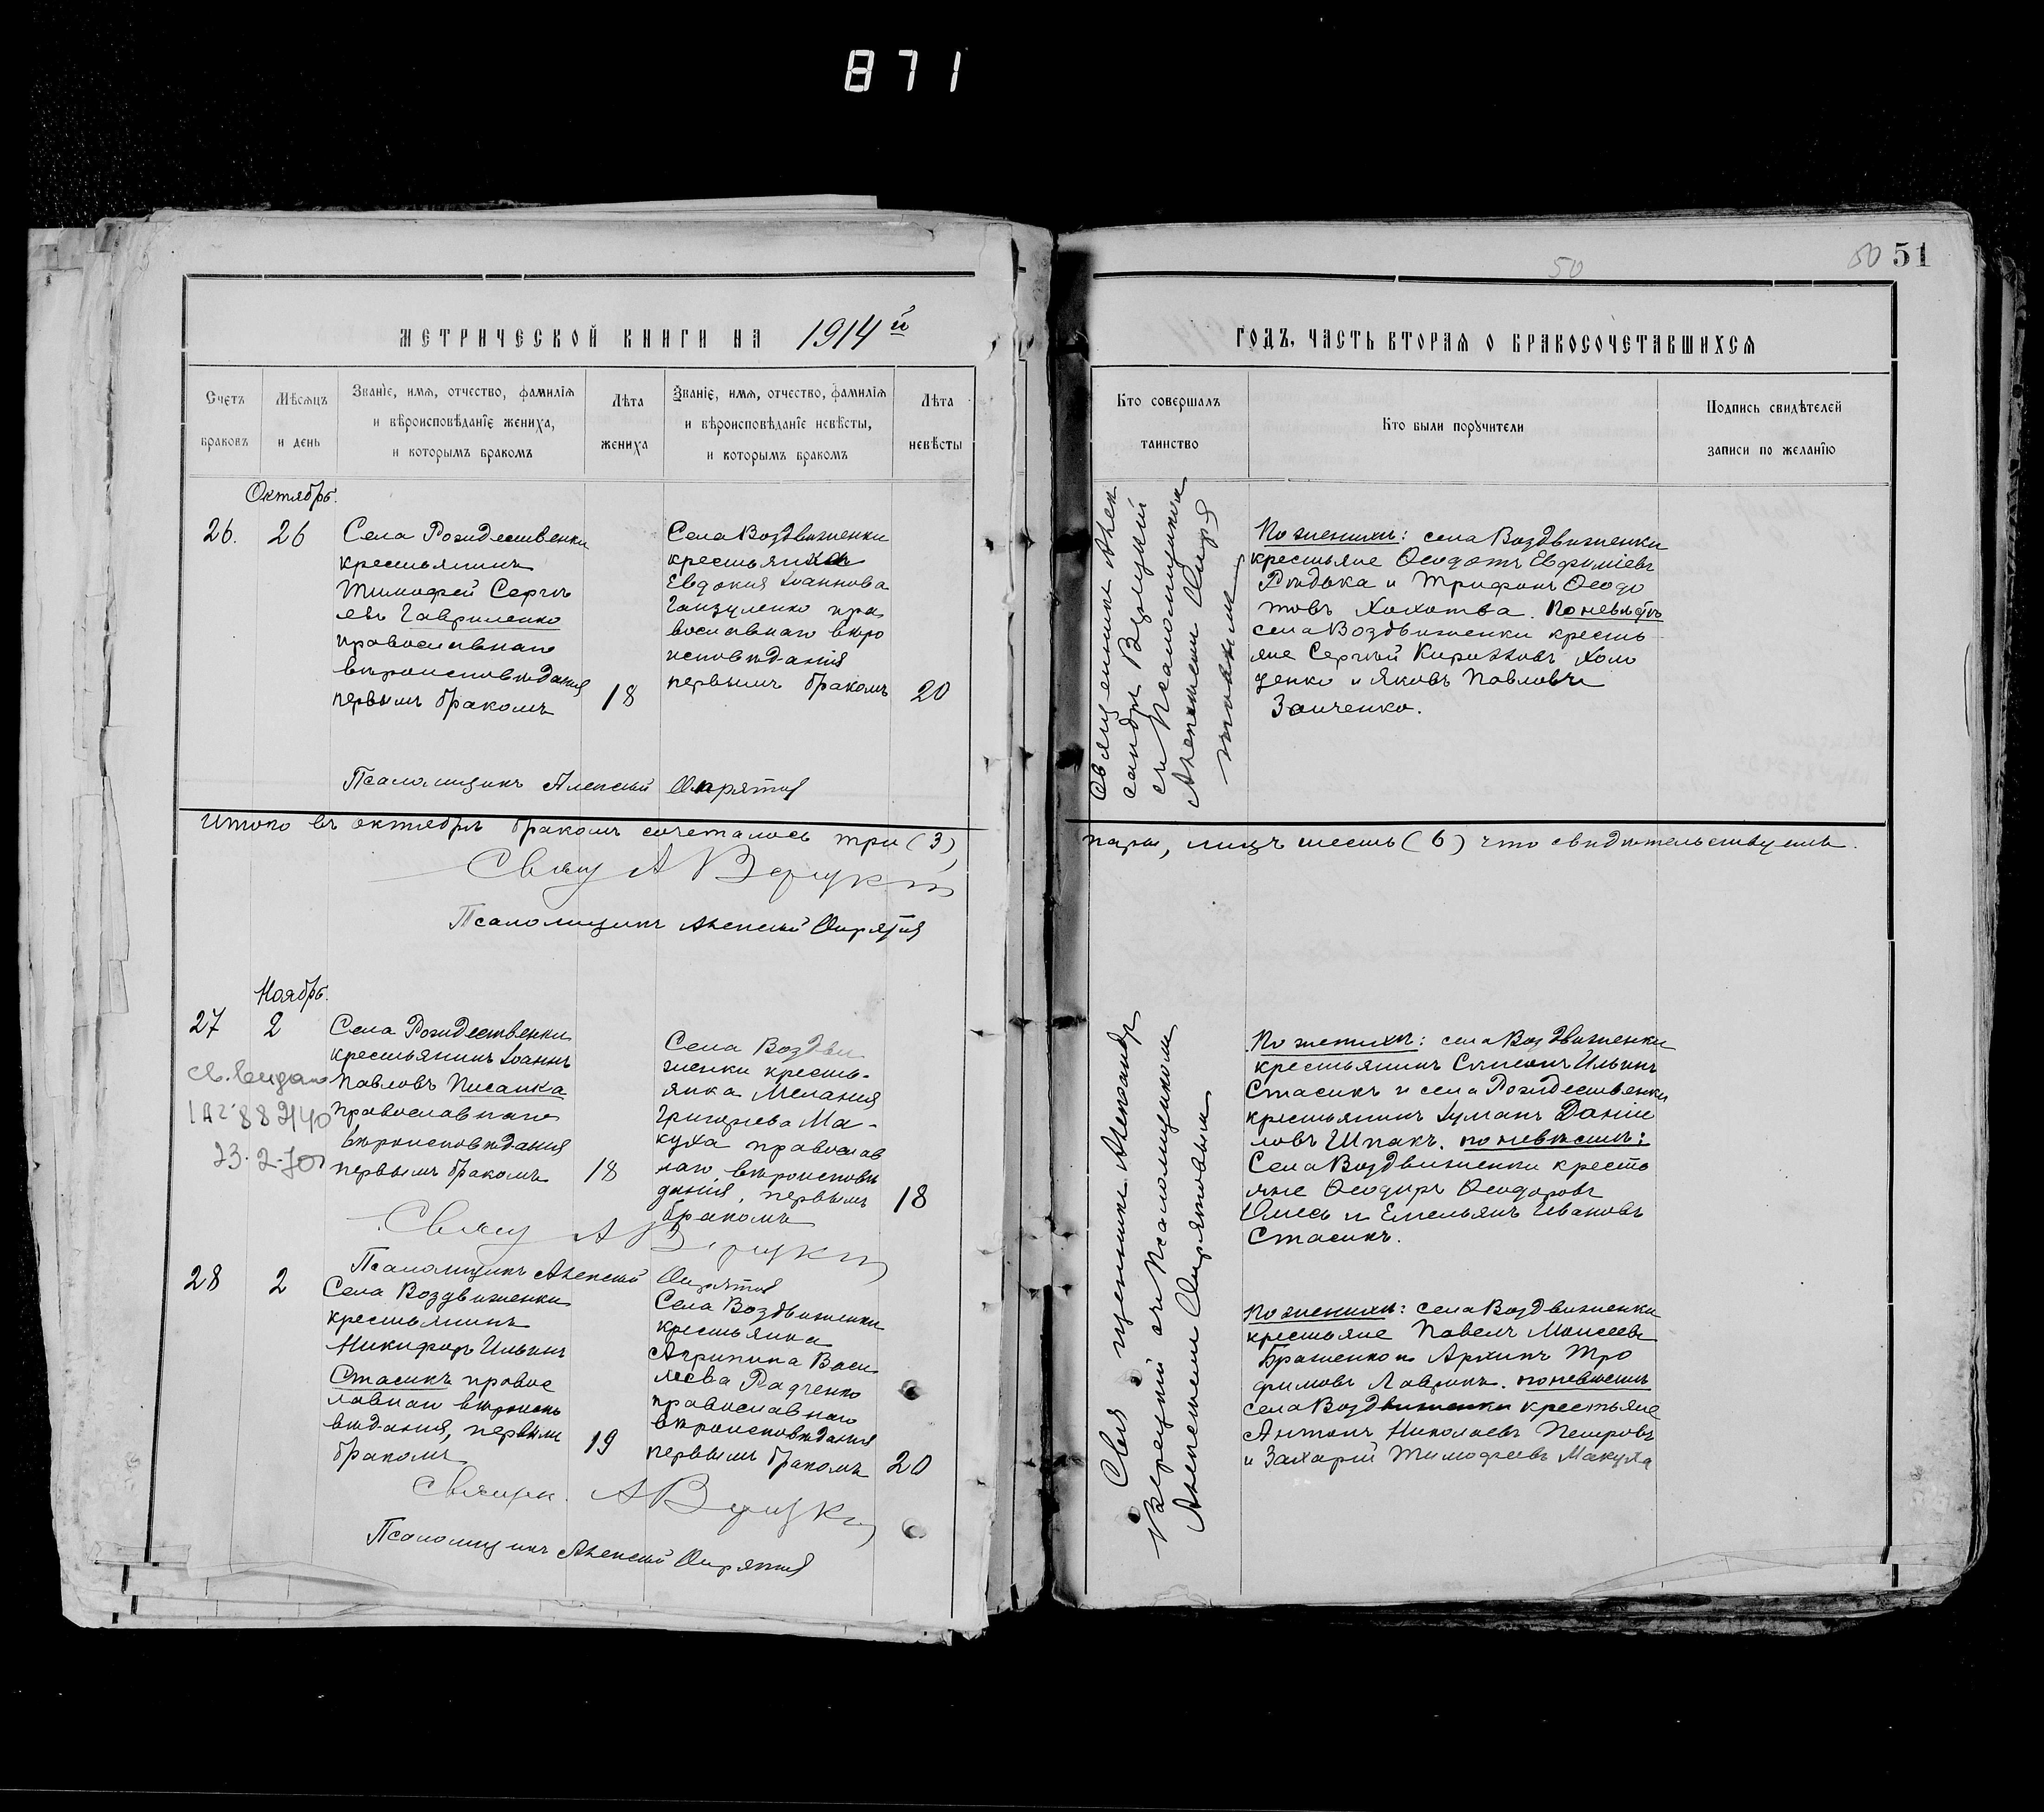 871
50
50 51
МЕТРИЧЕСКОЙ КНИГИ НА 1914й
ГОДЪ, ЧАСТЬ ВТОРАЯ О БРАКОСОЧЕТАВШИХСЯ
Счетъ браковъ
Мѣсяцъ и день
Званіе, имя, отчество, фамилія
и вѣроисповѣданіе жениха,
и которымъ бракомъ
Лѣта жениха
Званіе, имя, отчество, фамилія
и вѣроисповѣданіе невѣсты,
и которымъ бракомъ
Лѣта невѣсты
Кто совершалъ
таинство
Кто были поручители
Подпись свидѣтелей
записи по желанію
Октябрь.
26.
26
Села Рождественки
крестьянинъ
Тимофей Сергѣ
евъ Гавриленко
православнаго
вѣроисповѣданія
первымъ бракомъ
18
Села Воздвиженки
крестьянка
Евдокия Іоаннова
пра
вославнаго вѣро
исповѣданія
первымъ бракомъ
20
Священникъ Алек
сандръ Верецкій
съ Псаломщикомъ
Алексѣемъ Опря
товымъ
По женихѣ: села Воздвиженки
крестьяне Ѳеодотъ Евфиміевъ
Рѣдька и Трифонъ Ѳеодо
товъ Хохотва. По невѣстѣ
села Воздвиженки кресть
яне Сергѣй Кирилловъ Хом
ценко и Яковъ Павловъ
Заиченко.
Псаломщикъ Алексѣй Опрятов
Итого въ октябрѣ бракомъ сочеталось три (3)
пары, лицъ шесть (6) что свидѣтельствуемъ.
Свящ А Верецкій
Псаломщикъ Алексѣй Опрятов
Ноябрь.
27
2
Села Рождественки
крестьянинъ Іоаннъ
Павловъ Писанка
православнаго
вѣроисповѣданія
первымъ бракомъ
18
св. видано
23.2-70
Села Воздви
женки кресть-
янка Мелания
Григорьева Ма-
куха православ
наго вѣроисповѣ
данія, первымъ
бракомъ
18
Свящ А Верецкій
Псаломщикъ Алексѣй Опрятов
Священникъ Александр
Верецкій съ Псаломщикомъ
Алексѣемъ Опрятовымъ
По женихѣ: села Воздвиженки
крестьянинъ Симеонъ Ильинъ
Стасикъ и села Рождественки
крестьянинъ Даніи
ловъ Шпакъ. по невѣстѣ:
Села Воздвиженки кресть
яне Ѳеодоръ Ѳеодоровъ
и Емельянъ Ивановъ
Стасикъ.
28
2
Села Воздвиженки
крестьянинъ
Никифоръ Ильинъ
Стасикъ правос
лавнаго вѣроиспо
вѣданія, первымъ
бракомъ
19
Села Воздвиженки
крестьянка
Агрипина Васи
льева Радченко
православнаго
вѣроисповѣданія
первымъ бракомъ
20
По женихѣ: села Воздвиженки
крестьяне Павелъ Моисеевъ
Браженко и Архипъ Тро
фимовъ Лавринъ. по невѣстѣ
села Воздвиженки крестьяне
Антонъ Николаевъ Петровъ
и Захарій Тимофеевъ Макуха
Священ. А Верецкій
Псаломщикъ Алексѣй Опрятов